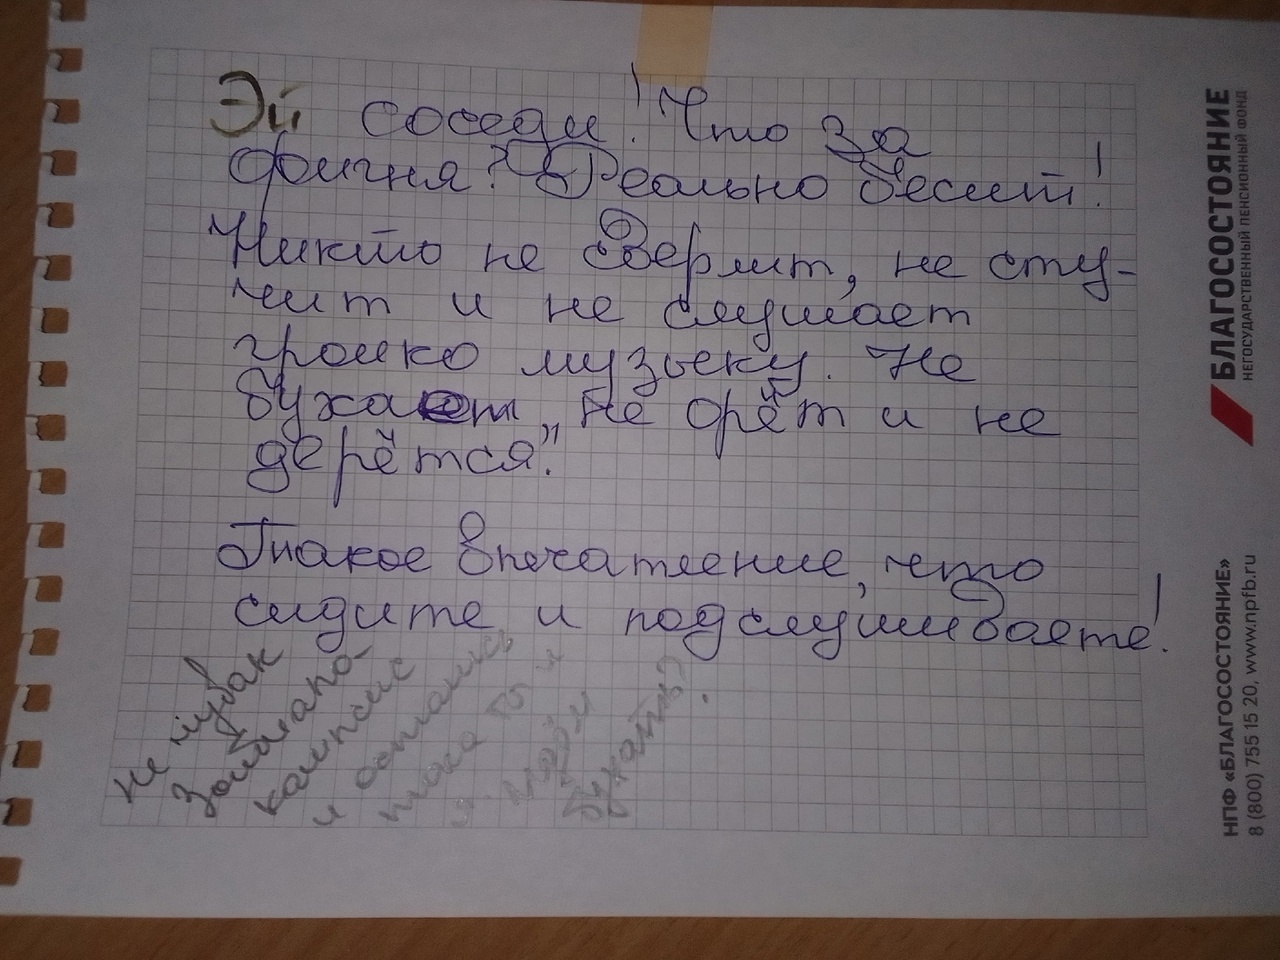 Эй соседи! Что за
фигня? Реально бесит!
Никто не сверлит, не сту-
чит и не слушает
громко музыку. Не
бухает, не орёт и не
дерётся".
Такое впечатление, что
сидите и подслушиваете!
не
и
бухать?
БЛАГОСОСТОЯНИЕ
НЕГОСУДАРСТВЕННЫЙ ПЕНСИОННЫЙ ФОНД
НПФ «БЛАГОСОСТОЯНИЕ»
8 (800) 755 15 20, www.npfb.ru